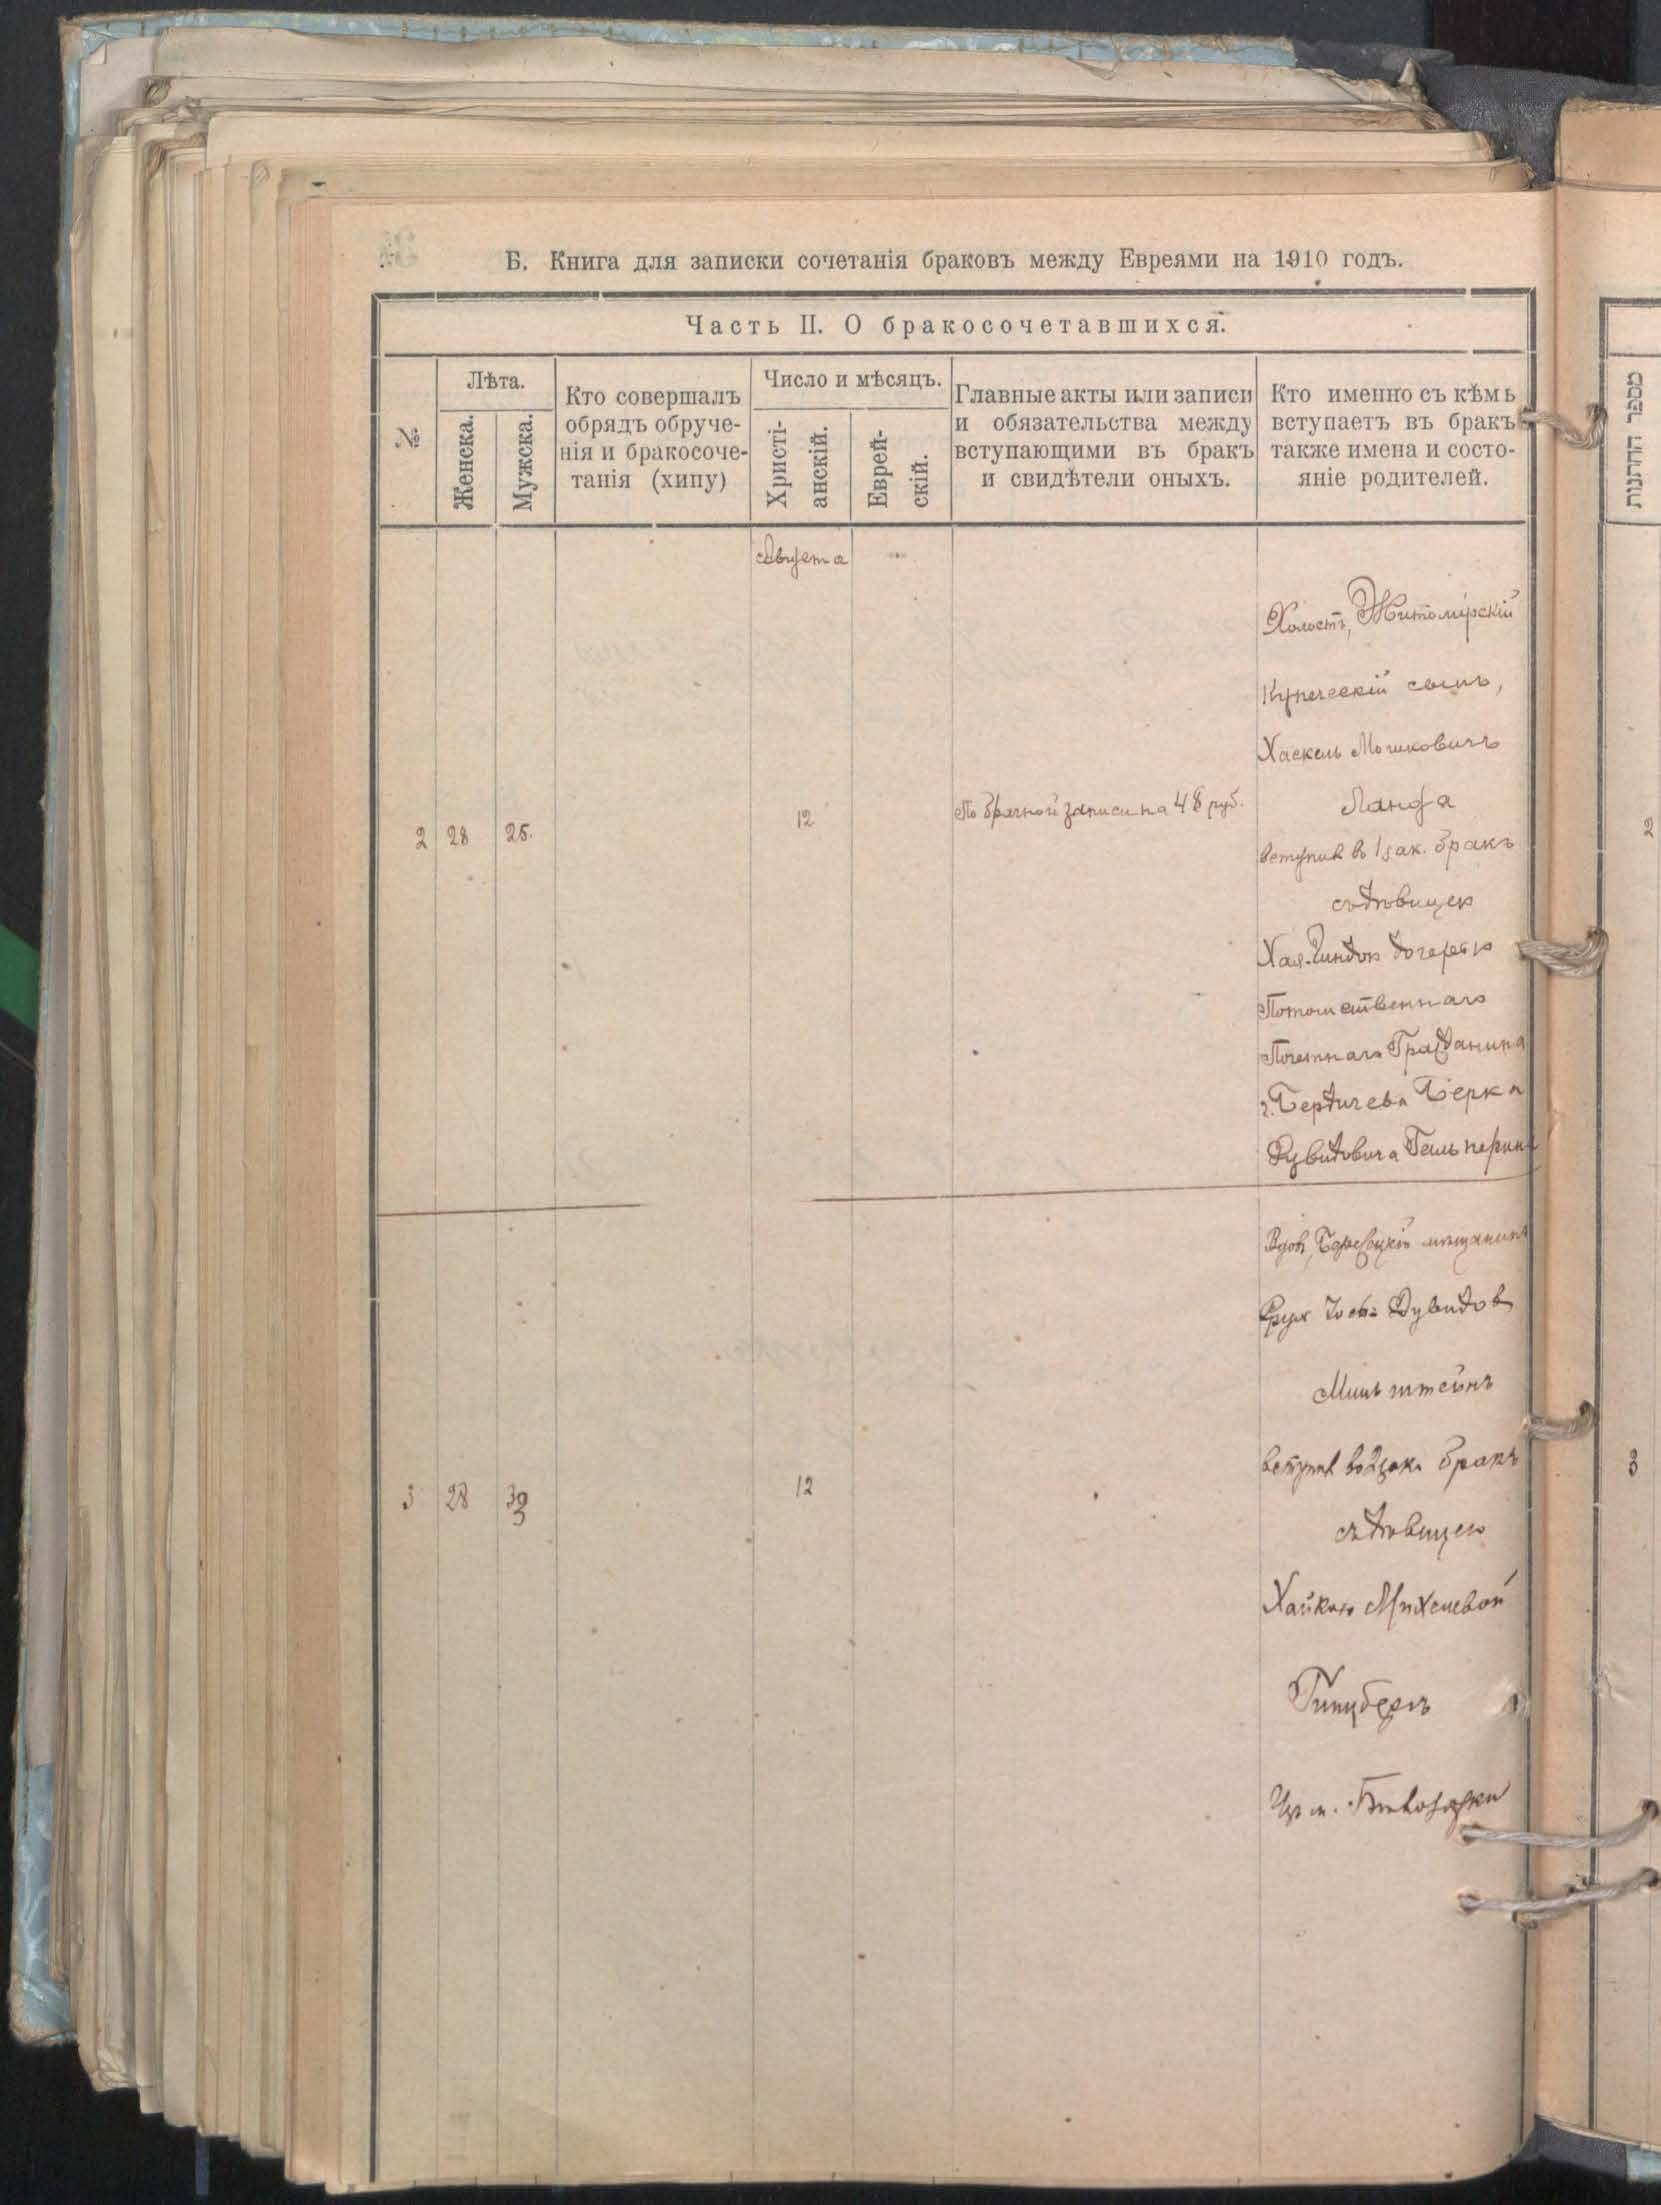 Б. Книга для записки сочетанія браковъ между Евреями на 1910 годъ.
Часть II. О бракосочетавшихся.
№
Лѣта.
Женска.
Мужска.
Кто совершалъ
обрядъ обруче-
нія и бракосоче-
танія (хипу)
Число и мѣсяцъ.
Христі-
анскій.
Еврей-
скій.
Главные акты или записи
и обязательства между
вступающими въ бракъ
и свидѣтели оныхъ.
Кто именно съ кѣмъ
вступаетъ въ бракъ
также имена и состо-
яніе родителей.
מספר החתונות
Августа
2
28
25.
12
По брачной записи на 48 руб.
Холостъ, Житомірскій
Купеческій сынъ,
Хаскель Мошковичъ
Ланда
вступив въ 1 зак. бракъ
съ дѣвицею
Хая-Риндою дочерью
Потомственнаго
Почетнаго Гражданина
г. Бердичева Берка
Дувидовича Гальперина
3
28
39
12
Вдов, мѣщанинъ
Дувидов
Мильштейнъ
вступив во 2 зак. бракъ
съ дѣвицею
Хайкою Михелевой
Гинцбергъ
29
30